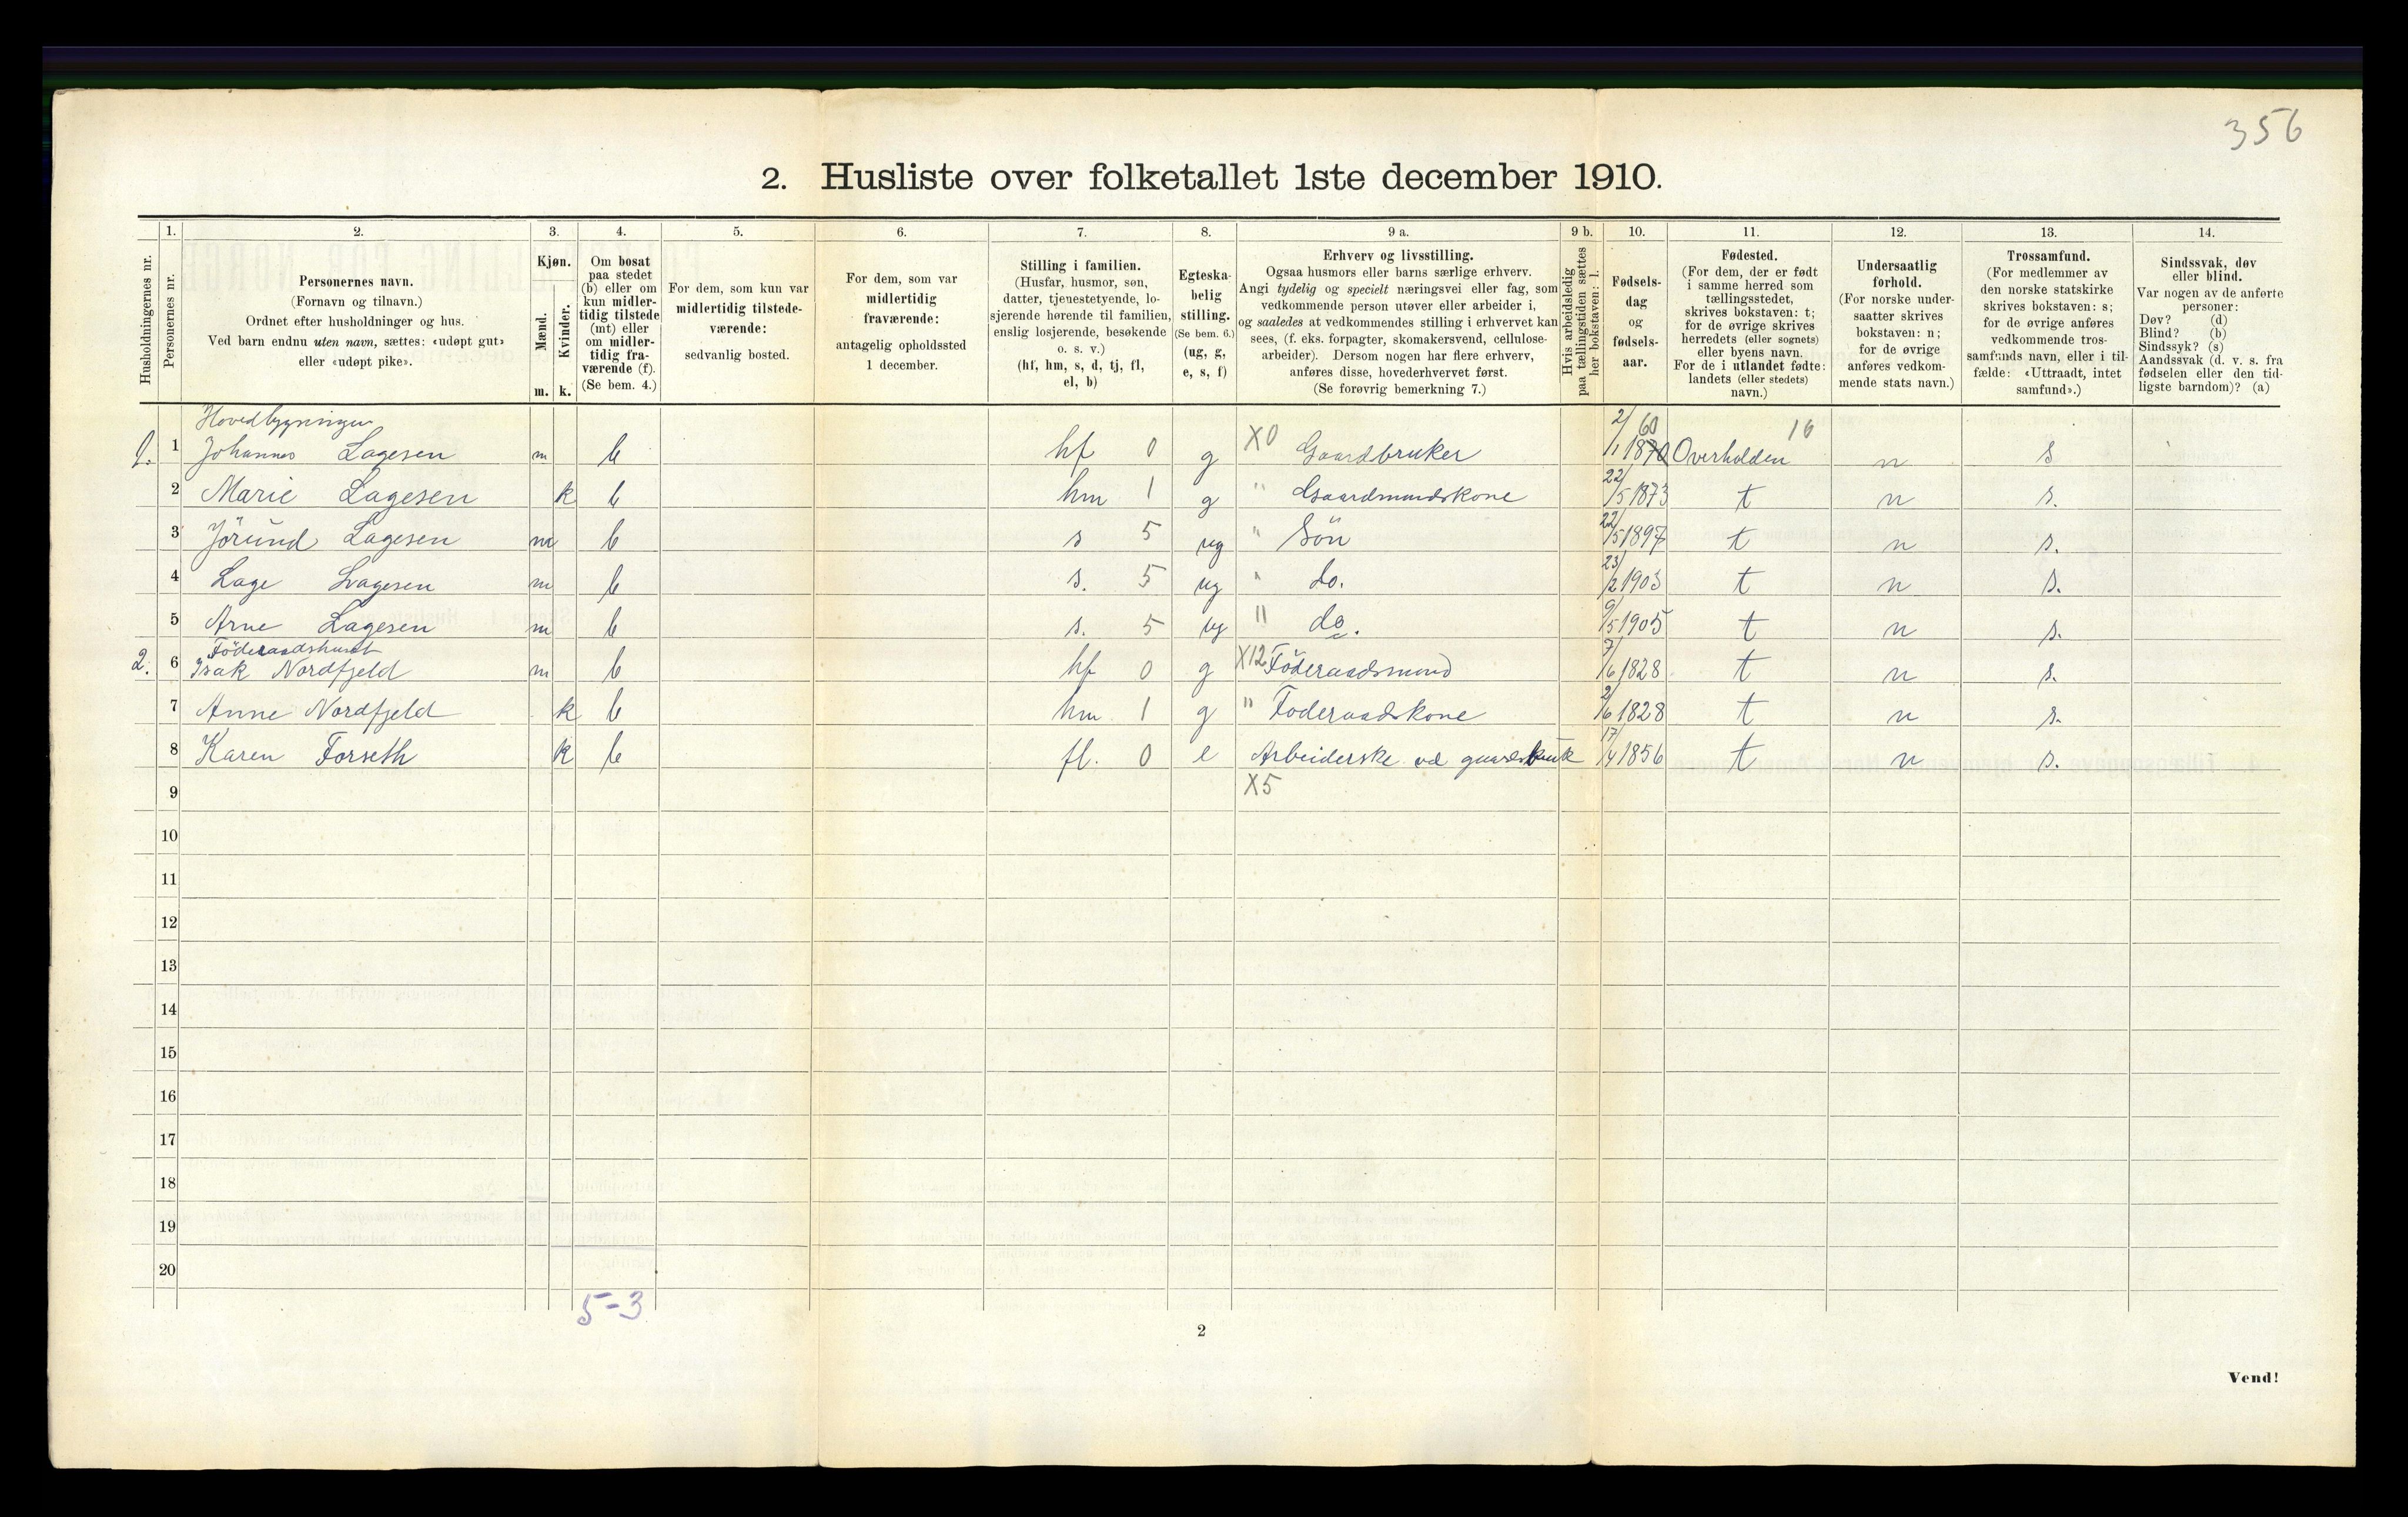 356
2. Husliste over folketallet 1ste december 1910.
Husholdningernes nr.
1.
Personernes nr.
2.
Personernes navn.
(Fornavn og tilnavn.)
Ordnet efter husholdninger og hus.
Ved barn endnu uten navn, sættes: «udøpt gut»
eller «udøpt pike».
3.
Kjøn.
Mænd.
Kvinder.
m. k.
4.
Om bosat
paa stedet
(b) eller om
kun midler-
tidig tilstede
(mt) eller
om midler-
tidig fra-
værende (f).
(Se bem. 4.)
5.
For dem, som kun var
midlertidig tilstede-
værende:
sedvanlig bosted.
6.
For dem, som var
midlertidig
fraværende:
antagelig opholdssted
1 december.
7.
Stilling i familien.
(Husfar, husmor, søn,
datter, tjenestetyende, lo-
sjerende hørende til familien,
enslig losjerende, besøkende
o. s. v.)
(hf, hm, s, d, tj, fl,
el, b)
8.
Egteska-
belig
stilling.
(Se bem. 6.)
(ug, g,
e, s, f)
9 a.
Erhverv og livsstilling.
Ogsaa husmors eller barns særlige erhverv.
Angi tydelig og specielt næringsvei eller fag, som
vedkommende person utøver eller arbeider i,
og saaledes at vedkommendes stilling i erhvervet kan
sees, (f. eks. forpagter, skomakersvend, cellulose-
arbeider). Dersom nogen har flere erhverv,
anføres disse, hovederhvervet først.
(Se forøvrig bemerkning 7.)
9 b.
Hvis arbeidsledig
paa tællingstiden sættes
her bokstaven: l.
10.
Fødsels-
dag
og
fødsels-
aar.
11.
Fødested.
(For dem, der er født
i samme herred som
tællingsstedet,
skrives bokstaven: t;
for de øvrige skrives
herredets (eller sognets)
eller byens navn.
For de i utlandet fødte:
landets (eller stedets)
navn.)
12.
Undersaatlig
forhold.
(For norske under-
saatter skrives
bokstaven: n;
for de øvrige
anføres vedkom-
mende stats navn.)
13.
Trossamfund.
(For medlemmer av
den norske statskirke
skrives bokstaven: s;
for de øvrige anføres
vedkommende tros-
samfunds navn, eller i til-
fælde: «Uttraadt, intet
samfund».)
14.
Sindssvak, døv
eller blind.
Var nogen av de anførte
personer:
Døv? (d)
Blind? (b)
Sindssyk? (s)
Aandssvak (d. v. s. fra
fødselen eller den tid-
ligste barndom)? (a)
Hovedbygningen
1. 1 Johannes Lagesen m b hf 0 g X0 Gaardbruker 2/1 1870 60 Overhalden 16 n s
2 Marie Lagesen k b hm 1 g " Gaardmandskone 22/5 1873 t n s.
3 Jörund Lagesen m b s 5 ug " Sön 22/5 1897 t n s.
4 Lage Lagesen m b s. 5 ug " do. 23/2 1903 t n s.
5 Arne Lagesen m b s. 5 ug " do. 9/5 1905 t n s.
Föderaadshuset
2. 6 Isak Nordfjeld m b hf 0 g X12 Föderaadsmand 7/6 1828 t n s.
7 Anne Nordfjeld k b hm 1 g " Föderaadskone 2/6 1828 t n s.
8 Karen Forseth k b fl. 0 e Arbeiderske ved gaardsbruk 17/4 1856 t n s.
9 X5
10
11
12
13
14
15
16
17
18
19
20
5-3
2
Vend!